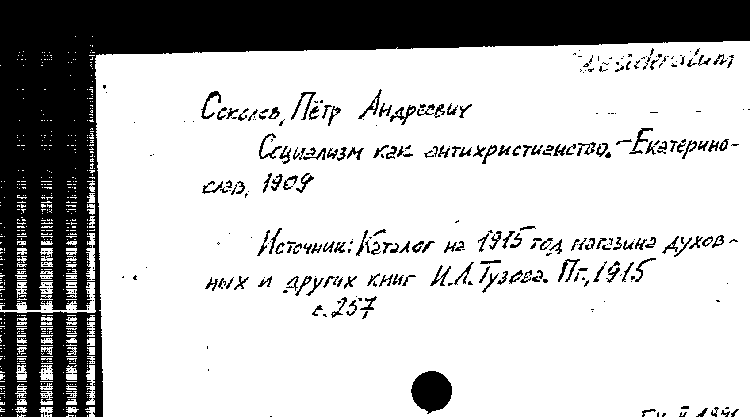 Desideratum
Соколов, Пётр Андреевич
Социализм как антихристианство. – Екатерино-
слав, 1909
Источник: Каталог на 1915 год магазина духов-
ных и других книг И.Л. Тузова. Пг., 1915
с. 257